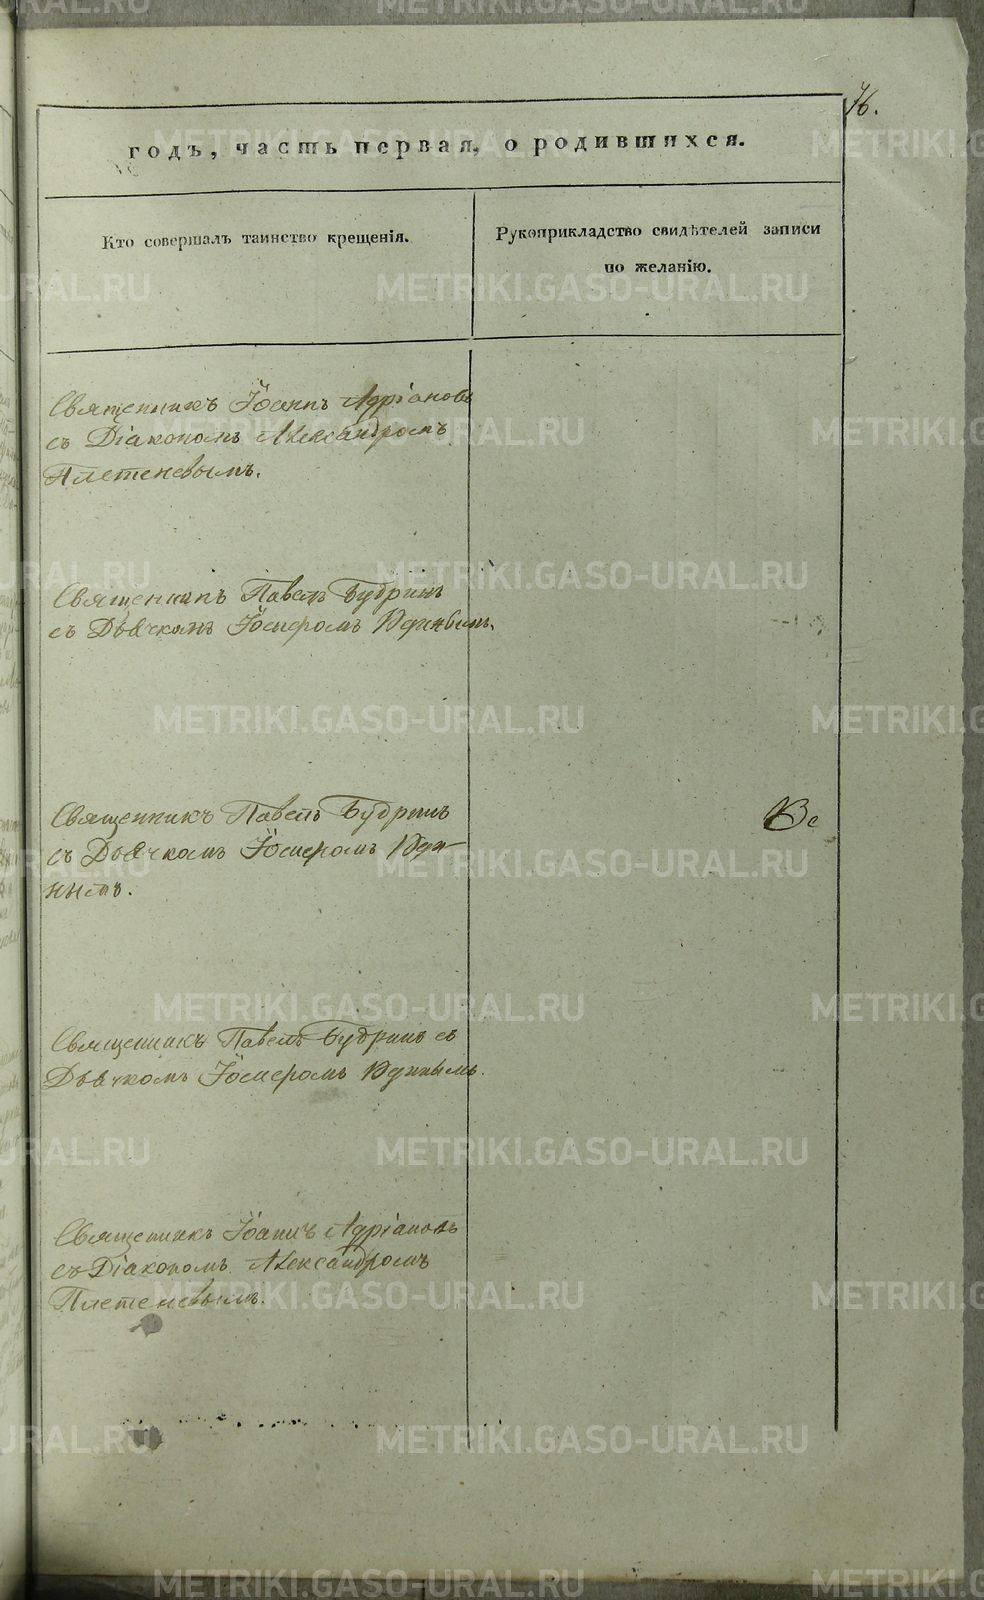 76.
годъ, часть первая, о родившихся.
Кто совершалъ таинство крещенія.
Рукоприкладство свидѣтелей записи
по желанію.
Священникъ Іоаннъ Адріановъ
съ Діакономъ Александромъ
Плетеневымъ.
Священникъ Павелъ Будринъ
съ Дьячкомъ
Священникъ Павелъ Будринъ
съ Дьячкомъ
Священникъ Павелъ Будринъ съ
Дьячкомъ
Священникъ Іоаннъ Адріановъ
съ Діакономъ Александромъ
Плетеневымъ.
METRIKI.GASO-URAL.RU